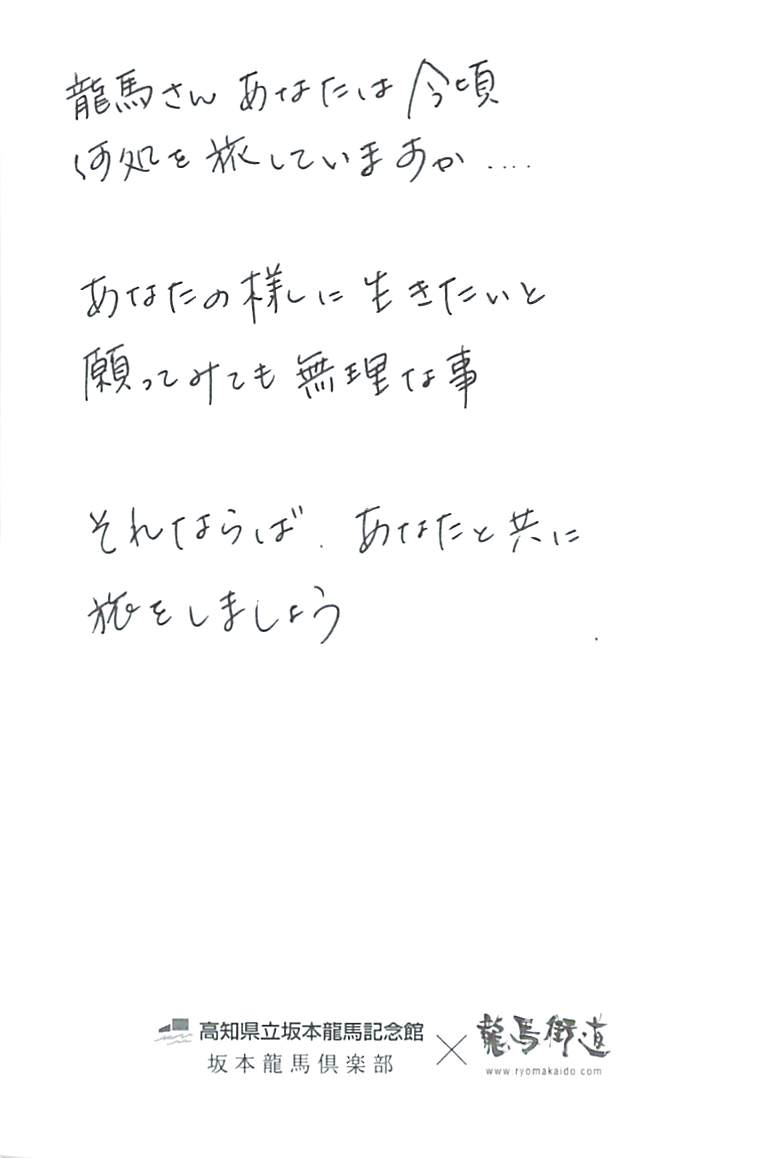 龍馬さん あなたは今頃
何処を旅していますか....
あなたの様に生きたいと
願ってみても無理な事
それならば、あなたと共に
旅をしましょう
高知県立坂本龍馬記念館
坂本龍馬倶楽部
×
龍馬街道
www.ryomakaido.com